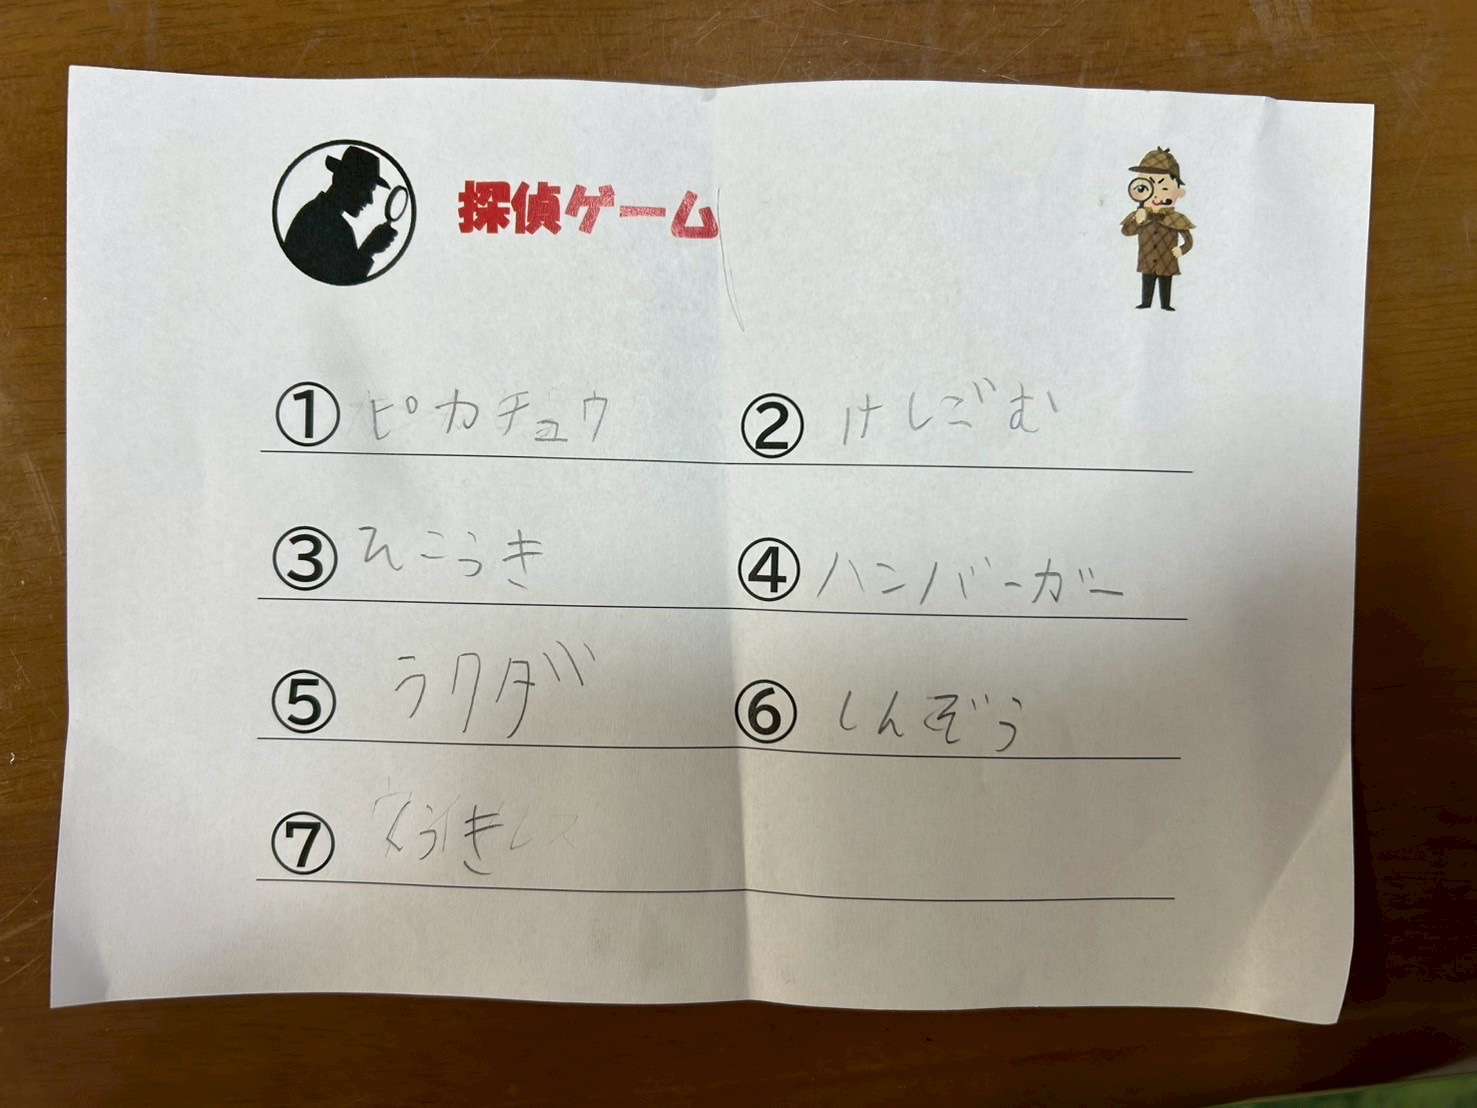 探偵ゲーム
① ピカチュウ ② けしごむ
③ ひこうき ④ ハンバーガー
⑤ ラクダ ⑥ しんぞう
⑦ くうき